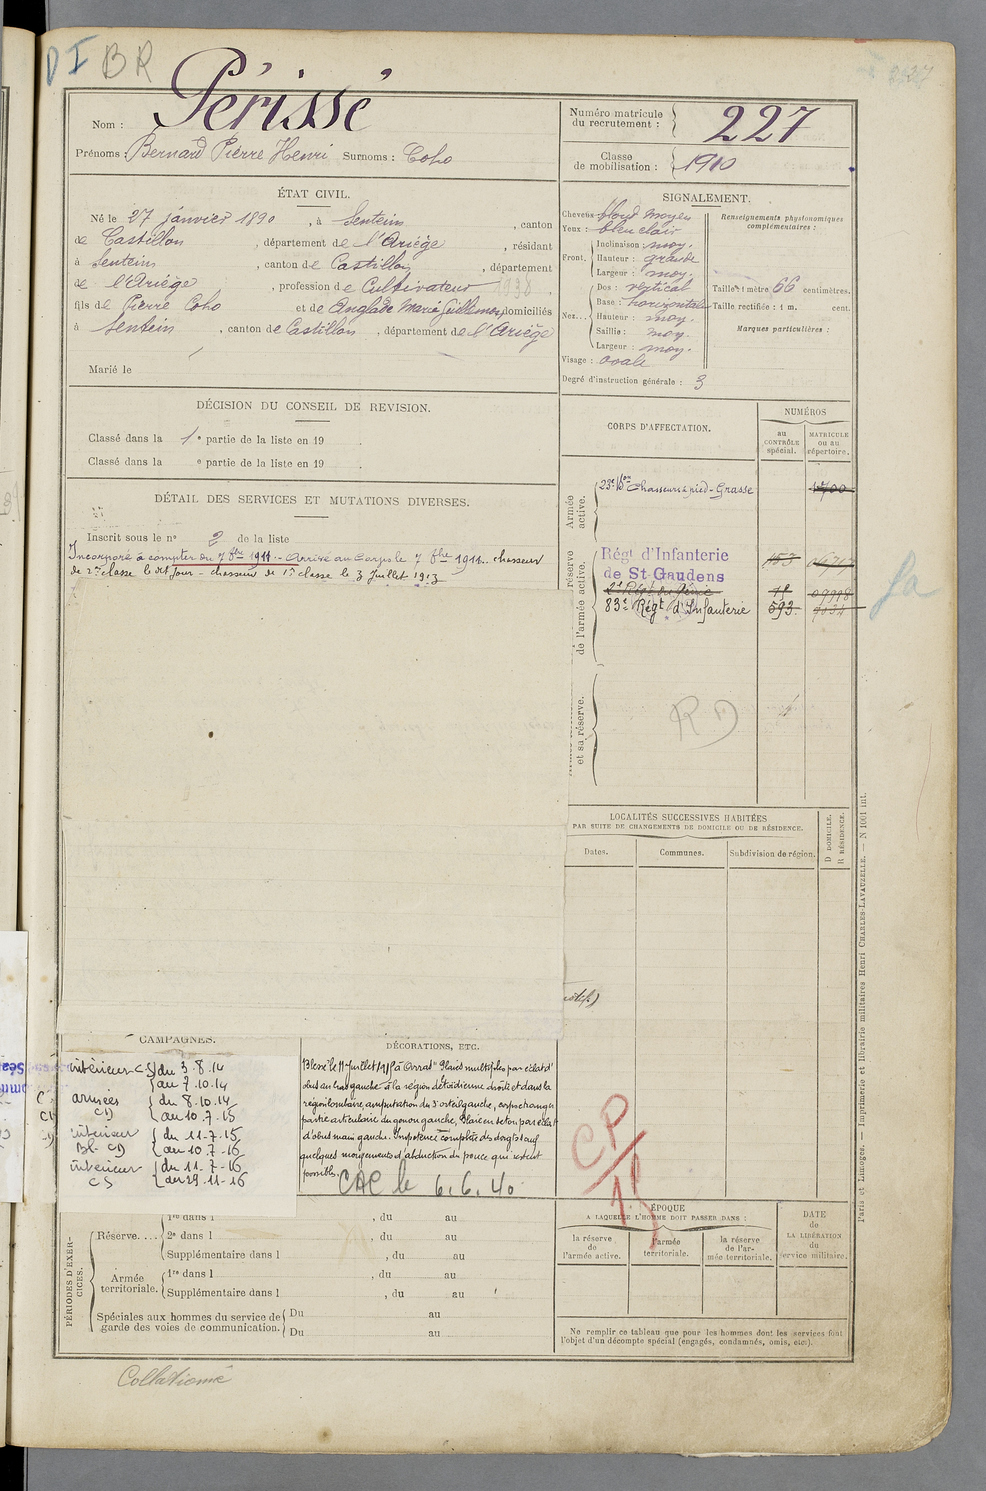 DI BR
Nom : Périssé
Prénoms : Bernard Pierre Henri Surnoms : Coho
Numéro matricule du recrutement : 227
Classe de mobilisation : 1910
ÉTAT CIVIL.
Né le 27 janvier 1890, à Sentein, canton
de Castillon, département de l'Ariège, résidant
à Sentein, canton de Castillon, département
de l'Ariège, profession de Cultivateur
fils de Pierre Coho et de Anglade Marie Guillemine domiciliés
à Sentein, canton de Castillon, département de l'Ariège
Marié le
SIGNALEMENT.
Cheveux blond moyen
Yeux : bleu clair
Front. Inclinaison : moy.
Hauteur : grande
Largeur : moy.
Nez... Dos : vertical
Base : horizontale
Hauteur : moy.
Saillie : moy.
Largeur : moy.
Visage : ovale
Renseignements physionomiques complémentaires :
Taille : 1 mètre 66 centimètres.
Taille rectifiée : 1 m. cent.
Marques particulières :
Degré d'instruction générale : 3
DÉCISION DU CONSEIL DE REVISION.
Classé dans la 1e partie de la liste en 19 .
Classé dans la e partie de la liste en 19 .
DÉTAIL DES SERVICES ET MUTATIONS DIVERSES.
Inscrit sous le n° 2 de la liste
Incorporé à compter du 7 8bre 1911.- Arrivé au Corps le 7 8bre 1911.. chasseur
de 2me classe le dit jour - chasseur de 1re classe le 3 Juillet 1913
CORPS D'AFFECTATION.
NUMÉROS
au CONTRÔLE spécial.
MATRICULE ou au répertoire.
Armée active.
23e Bon Chasseurs à pied - Grasse
réserve de l'armée active.
Régt d'Infanterie
de St-Gaudens 153
2e Régt du Génie
83e Régt d'Infanterie 593
et sa réserve.
RD
LOCALITÉS SUCCESSIVES HABITÉES
PAR SUITE DE CHANGEMENTS DE DOMICILE OU DE RÉSIDENCE.
Dates.
Communes.
Subdivision de région.
D DOMICILE.
R RÉSIDENCE.
CAMPAGNES.
intérieur CS du 3.8.14
au 7.10.14
armées du 8.10.14
CD au 10.7.15
intérieur du 11-7.15
Bl- CD au 10.7-16
intérieur du 11.7-16
CS au 29.11-16
DÉCORATIONS, ETC.
Blessé le 11 Juillet 1915 à Arras "Plaies multiples par éclat d'
obus au bras gauche à la région deltoïdienne droite et dans la
région lombaire, amputation du 5e orteil gauche, corps étranger
partie articulaire du genou gauche, Plaie en seton par éclat
d'obus main gauche. Impotence complète des doigts sauf
quelques mouvements d'abduction du pouce qui restent
possibles.
CAC le 6.6.40
CP/15
PÉRIODES D'EXERCICES.
1re dans l , du au
Réserve.... 2e dans l , du au
Supplémentaire dans l , du au
Armée territoriale. 1re dans l , du au
Supplémentaire dans l , du au
Spéciales aux hommes du service de garde des voies de communication. Du au
Du au
ÉPOQUE
A LAQUELLE L'HOMME DOIT PASSER DANS :
la réserve de l'armée active.
l'armée territoriale.
la réserve de l'armée territoriale.
DATE de LA LIBÉRATION du service militaire.
Ne remplir ce tableau que pour les hommes dont les services font
l'objet d'un décompte spécial (engagés, condamnés, omis, etc.).
Paris et Limoges. — Imprimerie et librairie militaires Henri CHARLES-LAVAUZELLE. — N 1001 int.
Collationné